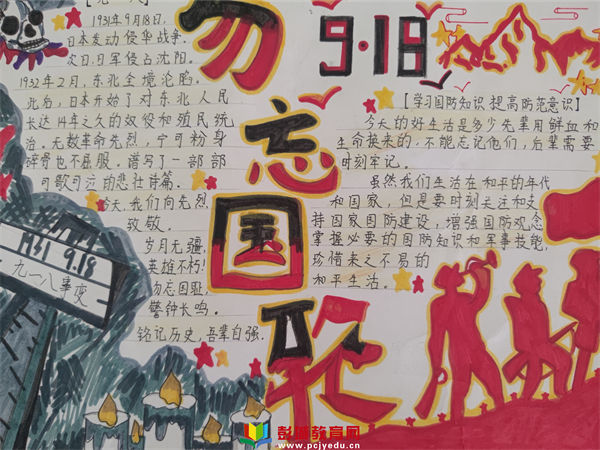 1931年9月18日,
日本发动侵华战争。
次日,日军侵占沈阳。
1932年2月,东北全境沦陷。
此后,日本开始了对东北人民
长达14年之久的奴役和殖民统
治。无数革命先烈,宁可粉身
碎骨也不屈服。谱写了一部部
可歌可泣的悲壮诗篇。
今天,我们向先烈
致敬。
岁月无疆,
英雄不朽!
勿忘国耻,
警钟长鸣。
铭记历史,吾辈自强.
勿
忘
国
耻
9·18
【学习国防知识 提高防范意识】
今天的好生活是多少先辈用鲜血和
生命换来的,不能忘记他们,后辈需要
时刻牢记。
虽然我们生活在和平的年代
和国家,但是要时刻关注和支
持国家国防建设,增强国防观念
掌握必要的国防知识和军事技能,
珍惜来之不易的
和平生活。
1931 9.18
九一八事变
彭浦教育网
www.pcjyedu.cn